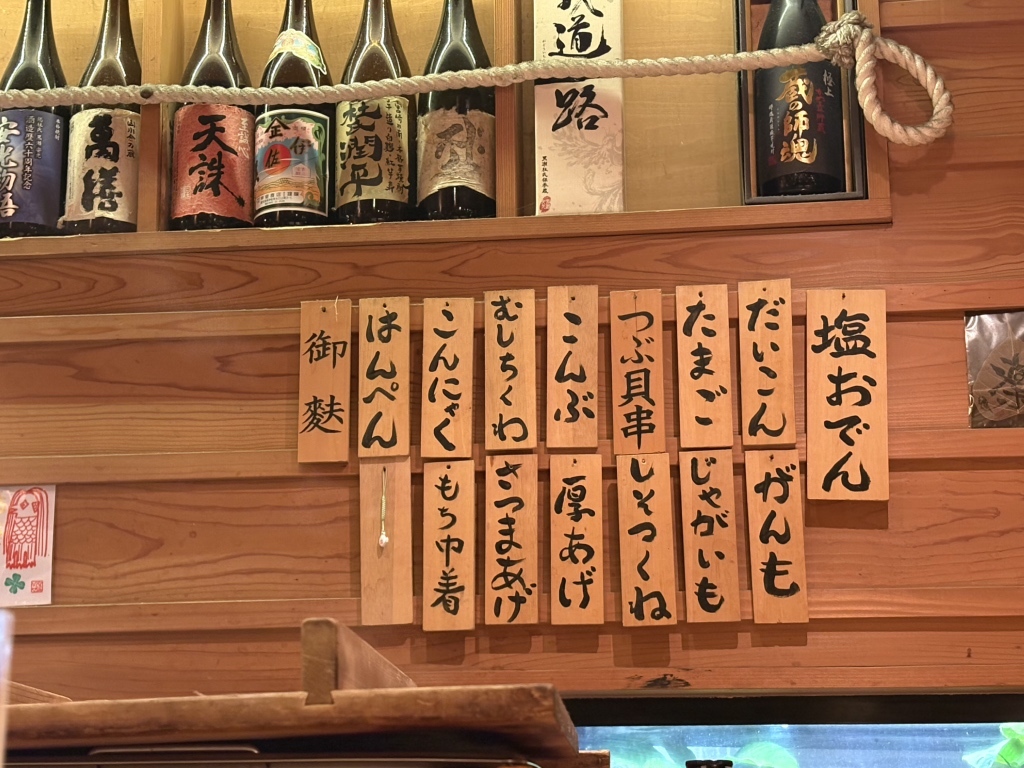 塩おでん
だいこん
たまご
つぶ貝串
こんぶ
むしちくわ
こんにゃく
はんぺん
御麩
がんも
じゃがいも
しそつくね
厚あげ
さつまあげ
もち巾着
萬膳
天誅
金佐
杜氏潤平
道
路
極上
蔵の師魂